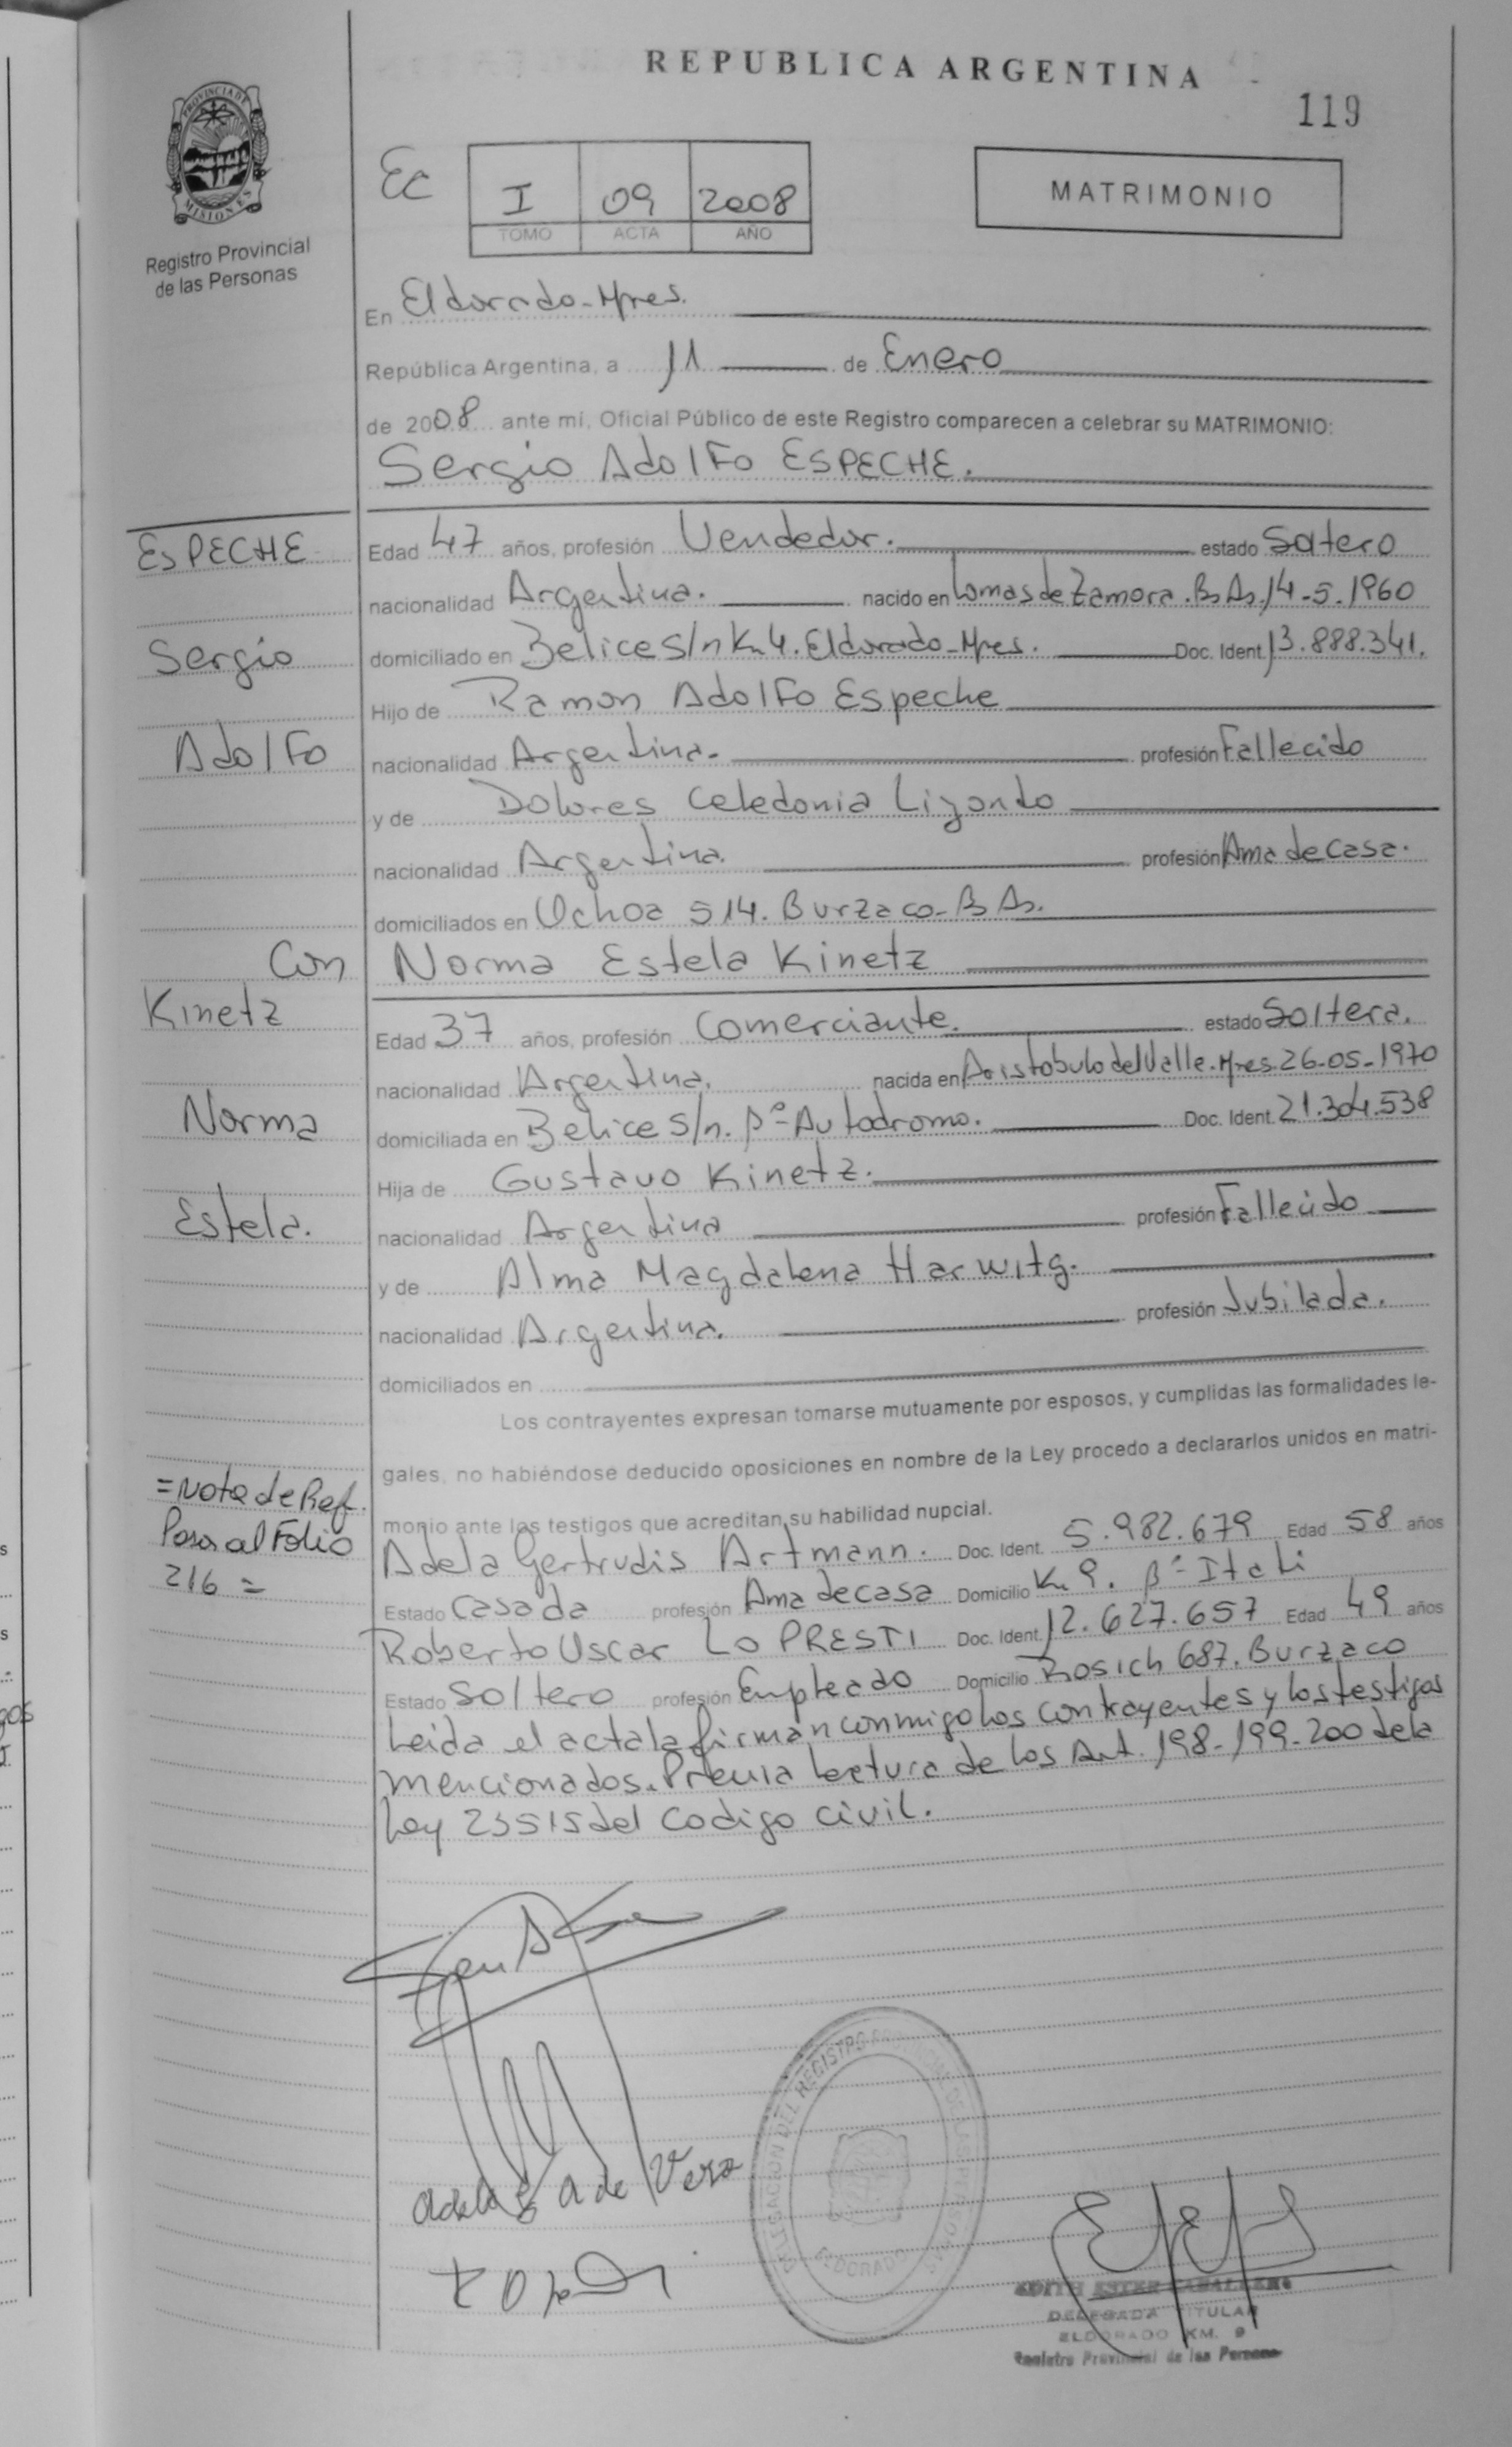 REPUBLICA ARGENTINA
119
PROVINCIA DE
MISIONES
Registro Provincial
de las Personas
Ec
I 09 2008
TOMO ACTA AÑO
MATRIMONIO
En Eldorado-Mnes.
República Argentina, a 11 de Enero
de 2008 ante mí, Oficial Público de este Registro comparecen a celebrar su MATRIMONIO:
Sergio Adolfo ESPECHE.
ESPECHE
Sergio
Adolfo
Con
Kinetz
Norma
Estela.
Edad 47 años, profesión Vendedor. estado Soltero
nacionalidad Argentina. nacido en Lomas de Zamora. Bs As. 14-5-1960
domiciliado en Belice S/n Km 4. Eldorado-Mnes. Doc. Ident. 13.888.341.
Hijo de Ramon Adolfo Espeche
nacionalidad Argentina. profesión Fallecido
y de Dolores Celedonia Lizondo
nacionalidad Argentina. profesión Ama de casa.
domiciliados en Ochoa 514. Burzaco-Bs As.
Norma Estela Kinetz
Edad 37 años, profesión Comerciante. estado Soltera.
nacionalidad Argentina. nacida en Aristobulo del Valle. Mnes. 26-05-1970
domiciliada en Belice S/n. Bº Autodromo. Doc. Ident. 21.304.538
Hija de Gustavo Kinetz.
nacionalidad Argentina profesión Fallecido
y de Alma Magdalena Harwitg.
nacionalidad Argentina. profesión Jubilada.
domiciliados en
Los contrayentes expresan tomarse mutuamente por esposos, y cumplidas las formalidades le-
gales, no habiéndose deducido oposiciones en nombre de la Ley procedo a declararlos unidos en matri-
monio ante los testigos que acreditan su habilidad nupcial.
=Nota de Ref.
Pasa al Folio
216=
Adela Gertrudis Artmann. Doc. Ident. 5.982.679 Edad 58 años
Estado Casada profesión Ama de casa Domicilio Km 9. Bº Itati
Roberto Oscar LO PRESTI Doc. Ident. 12.627.657 Edad 49 años
Estado Soltero profesión Empleado Domicilio Rosich 687. Burzaco
Leida el acta la firman conmigo los contrayentes y los testigos
mencionados. Previa lectura de los Art. 198-199-200 de la
Ley 23515 del Codigo civil.
Adela G A de Vera
DELEGACION DEL REGISTRO PROVINCIAL DE LAS PERSONAS
ELDORADO
EDITH ESTER CABALLERO
DELEGADA TITULAR
ELDORADO KM. 9
Registro Provincial de las Personas